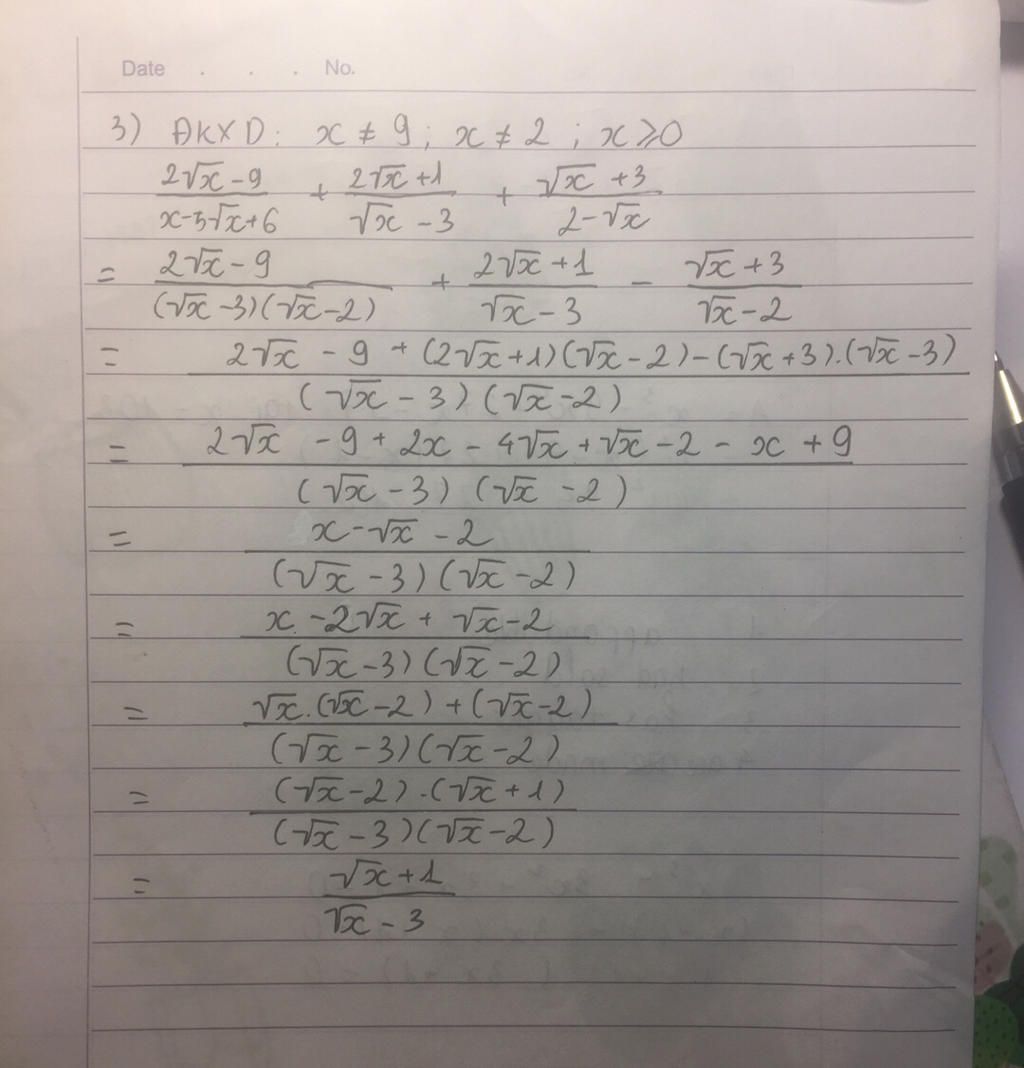 Date . . . No.
3) ĐKXD: x ≠ 9 ; x ≠ 2 ; x ⩾ 0
(2√x - 9)/(x-5√x+6) + (2√x+1)/(√x - 3) + (√x + 3)/(2-√x)
= (2√x - 9)/((√x - 3)(√x - 2)) + (2√x + 1)/(√x - 3) - (√x + 3)/(√x - 2)
= (2√x - 9 + (2√x+1)(√x - 2) - (√x + 3).(√x - 3))/((√x - 3)(√x - 2))
= (2√x - 9 + 2x - 4√x + √x - 2 - x + 9)/((√x - 3)(√x - 2))
= (x - √x - 2)/((√x - 3)(√x - 2))
= (x - 2√x + √x - 2)/((√x - 3)(√x - 2))
= (√x.(√x - 2) + (√x - 2))/((√x - 3)(√x - 2))
= ((√x - 2).(√x + 1))/((√x - 3)(√x - 2))
= (√x + 1)/(√x - 3)